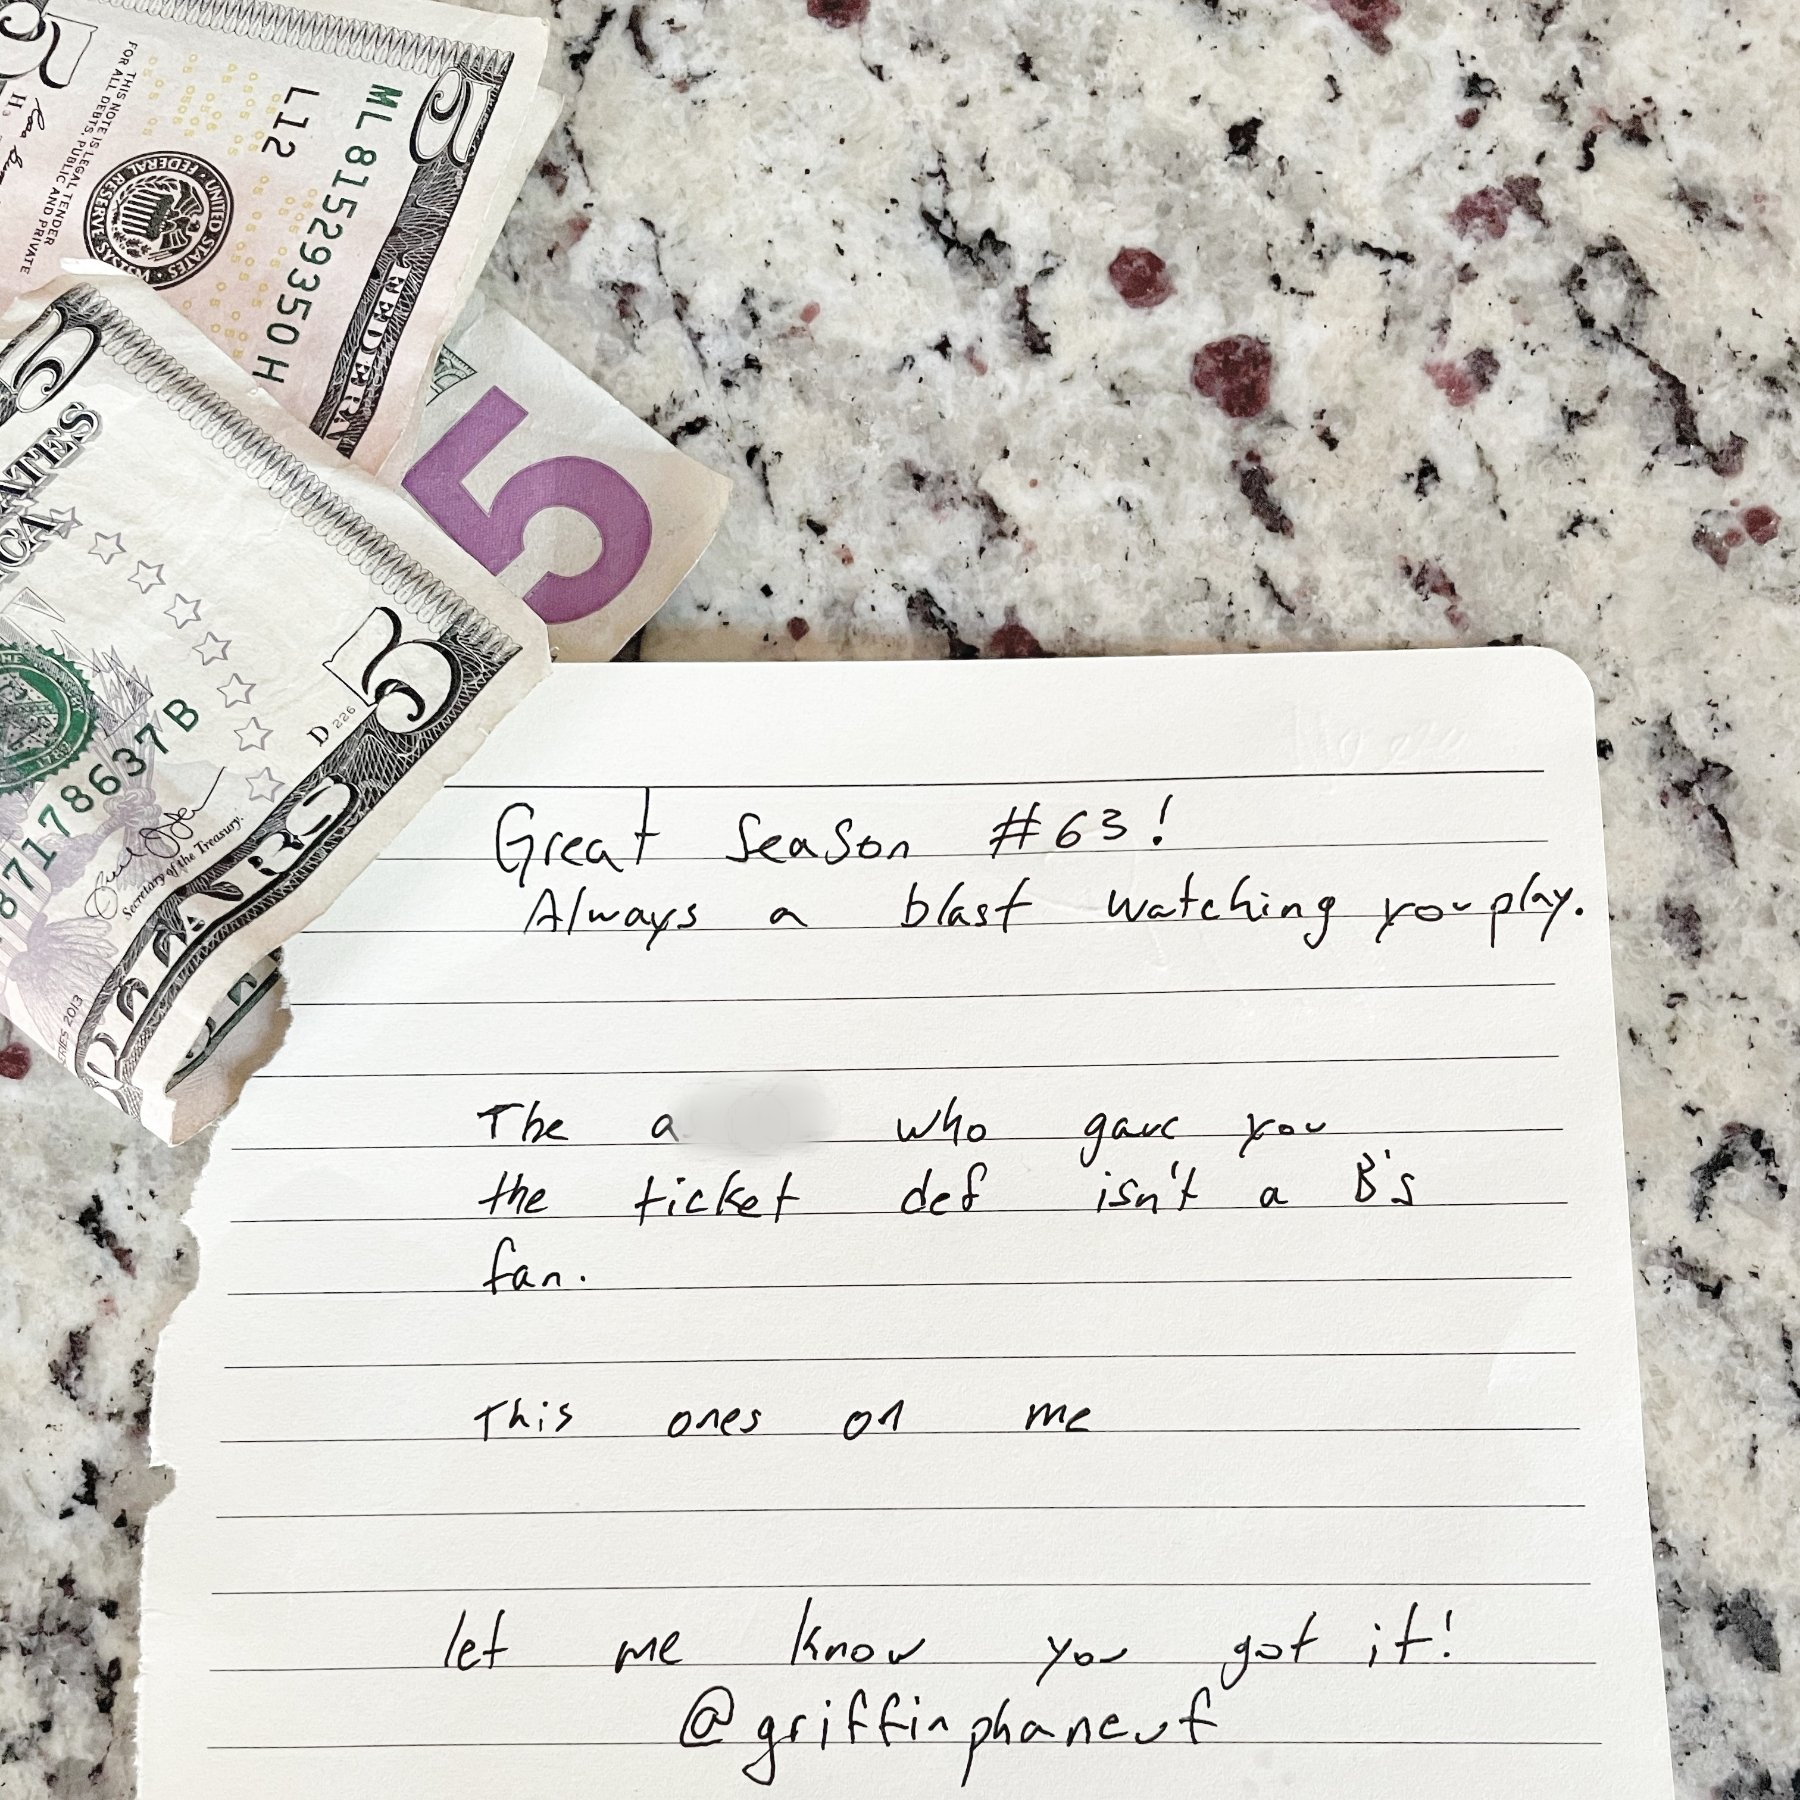 5
ML81529350H
L12
THIS NOTE IS LEGAL TENDER
FOR ALL DEBTS, PUBLIC AND PRIVATE
UNITED STATES FEDERAL RESERVE SYSTEM
FEDERA
5
5
ATES
ICA
5
D 226
87178637B
Secretary of the Treasury.
1789
Great Season #63!
Always a blast watching you play.
The a who gave you
the ticket def isn't a B's
fan.
This ones on me
let me know you got it!
@griffinphaneuf